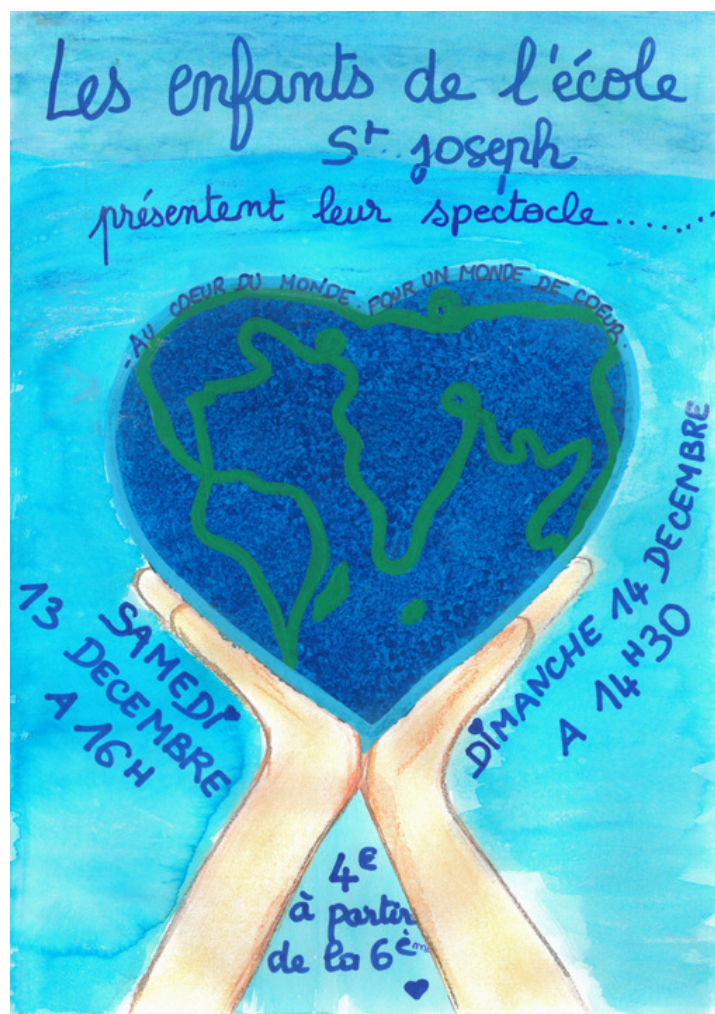 Les enfants de l'école
St joseph
présentent leur spectacle........
- AU COEUR DU MONDE. POUR UN MONDE DE COEUR.
SAMEDI
13 DECEMBRE
A 16H
DIMANCHE 14 DECEMBRE
A 14H30
4€
à partir
de la 6èm